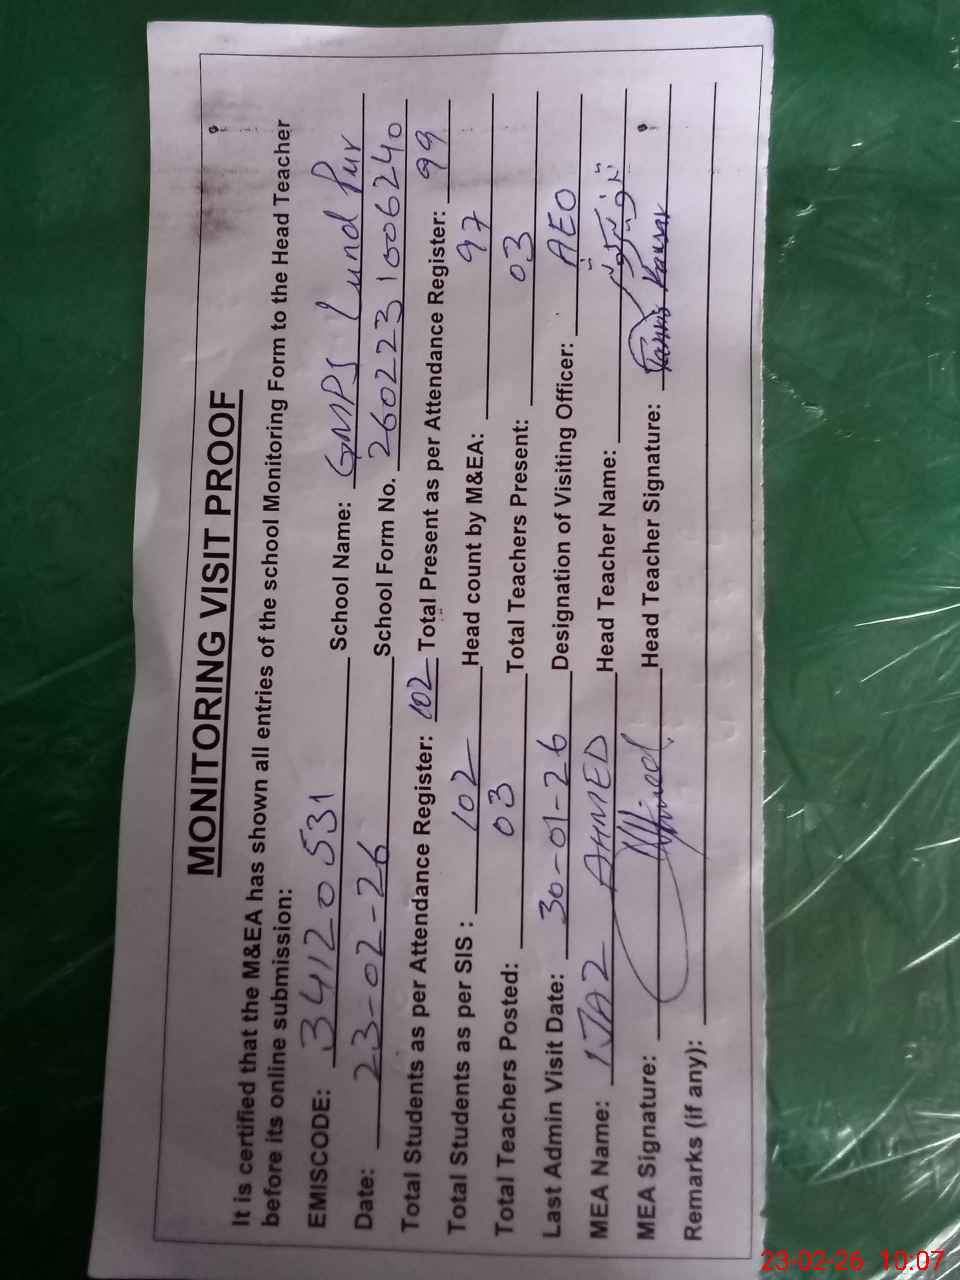 MONITORING VISIT PROOF
It is certified that the M&EA has shown all entries of the school Monitoring Form to the Head Teacher
before its online submission:
EMISCODE: 34120531 School Name: GMPS Lund Pur
Date: 23-02-26 School Form No. 2602231006240
Total Students as per Attendance Register: 102 Total Present as per Attendance Register: 99
Total Students as per SIS : 102 Head count by M&EA: 97
Total Teachers Posted: 03 Total Teachers Present: 03
Last Admin Visit Date: 30-01-26 Designation of Visiting Officer: AEO
MEA Name: IJAZ AHMED Head Teacher Name:
MEA Signature: Head Teacher Signature: Kausar
Remarks (if any):
23-02-26 10:07